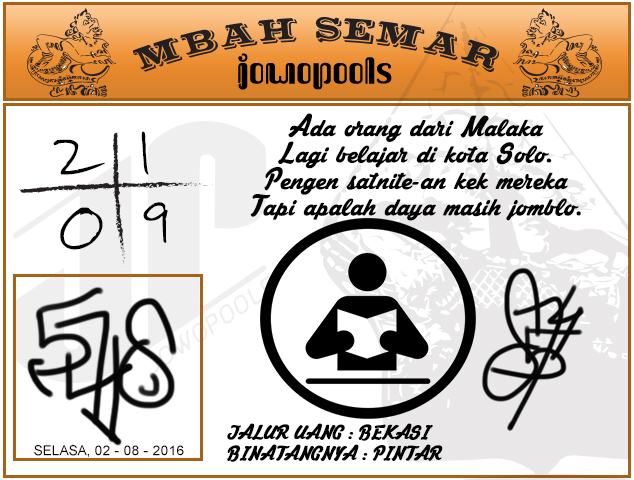 MBAH SEMAR
jowopools
Ada orang dari Malaka
Lagi belajar di kota Solo.
Pengen satnite-an kek mereka
Tapi apalah daya masih jomblo.
2 1
0 9
JOWOPOOLS
SELASA, 02 - 08 - 2016
JALUR UANG : BEKASI
BINATANGNYA : PINTAR